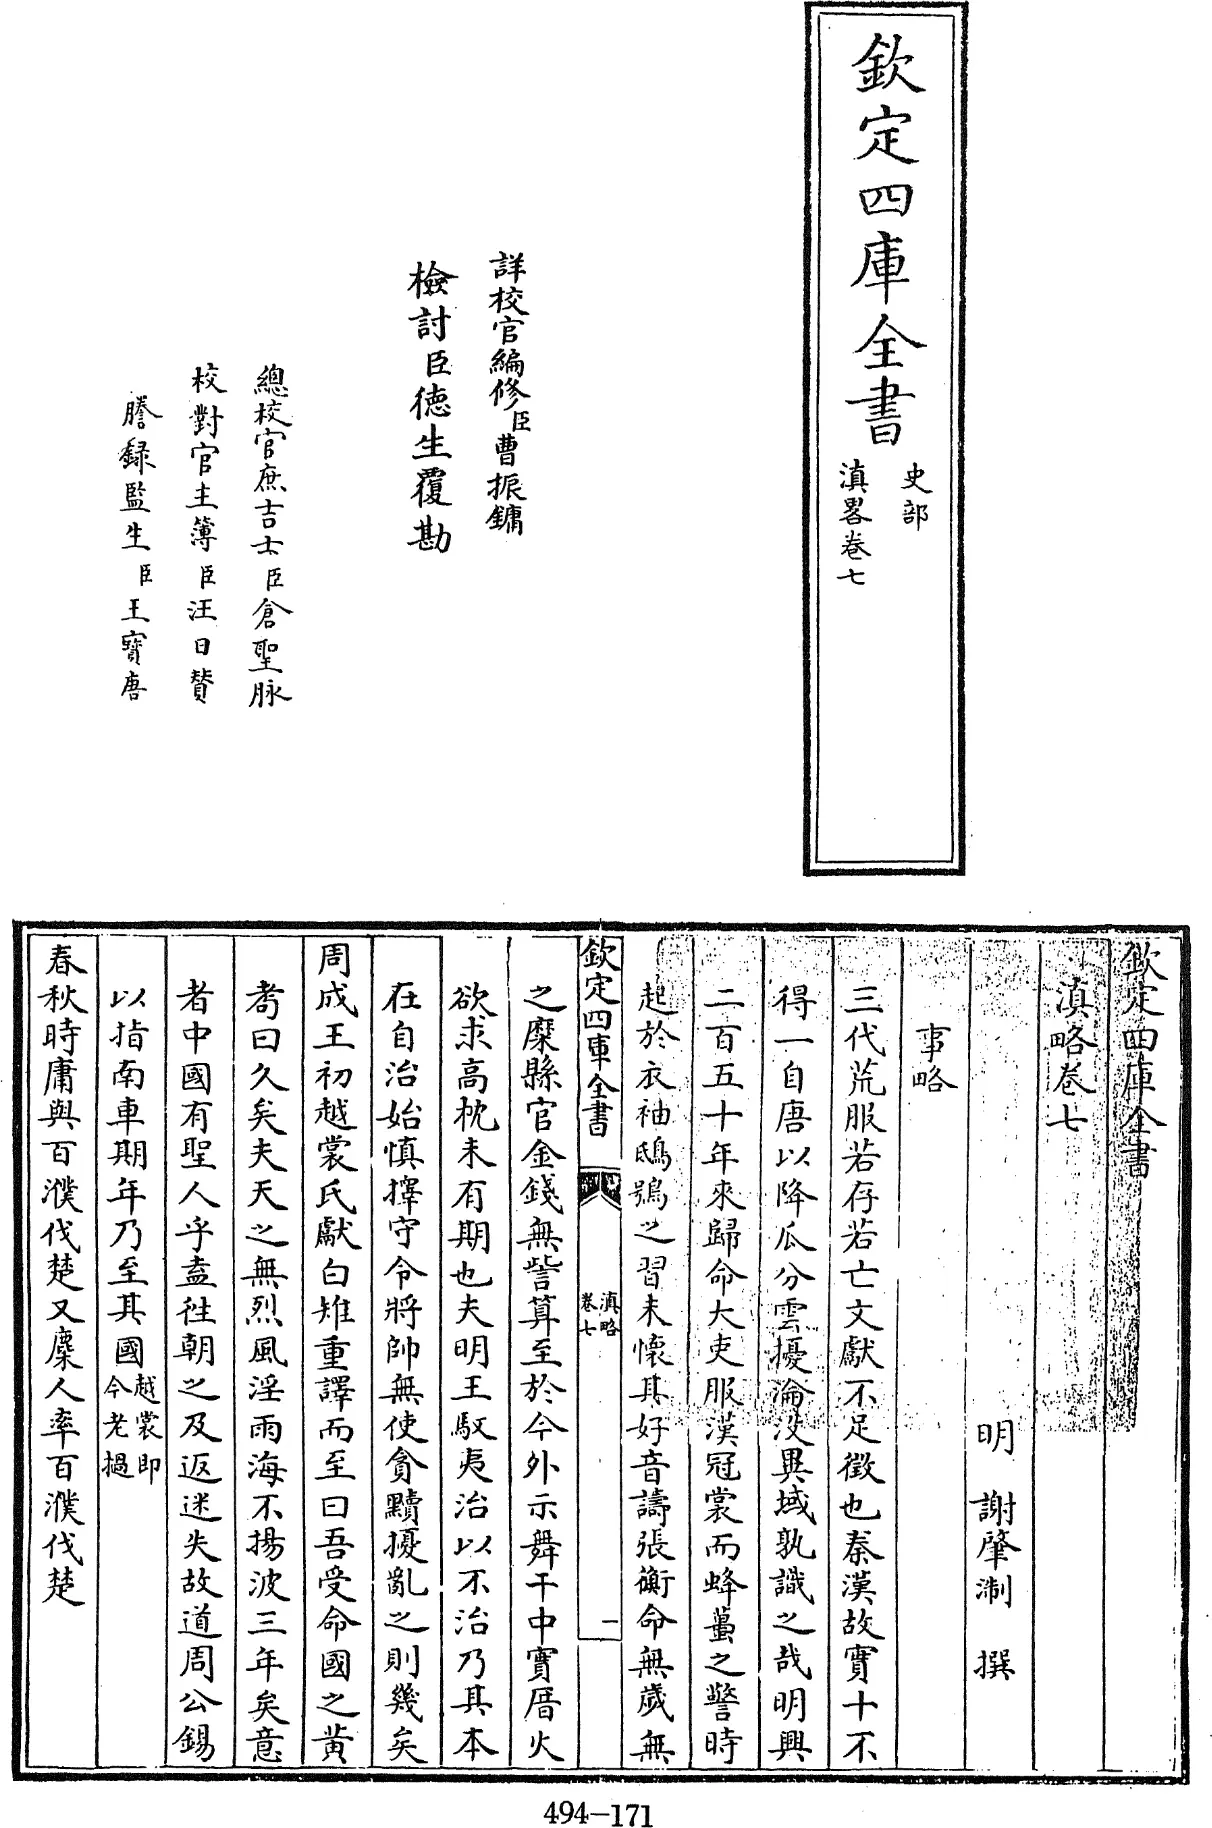 欽定四庫全書
史部
滇畧卷七
詳校官編修臣曹振鏞
檢討臣德生覆勘
總校官庶吉士臣倉聖脉
校對官主簿臣汪日贊
謄録監生臣王寳唐
欽定四庫全書
滇略卷七
明 謝肇淛 撰
事略
三代荒服若存若亡文獻不足徵也秦漢故實十不
得一自唐以降瓜分雲擾淪沒異域孰識之哉明興
二百五十年來歸命大吏服漢冠裳而蜂蠆之警時
起於衣袖鴟鴞之習未懷其好音譸張衡命無歲無
欽定四庫全書
滇略
卷七
一
之糜縣官金錢無訾算至於今外示舞干中實厝火
欲求高枕未有期也夫明王馭夷治以不治乃其本
在自治始慎擇守令將帥無使貪黷擾亂之則幾矣
周成王初越裳氏獻白雉重譯而至曰吾受命國之黄
耇曰久矣夫天之無烈風淫雨海不揚波三年矣意
者中國有聖人乎盍徃朝之及返迷失故道周公錫
以指南車期年乃至其國越裳即今老撾
春秋時庸與百濮伐楚又麇人率百濮伐楚
494-171